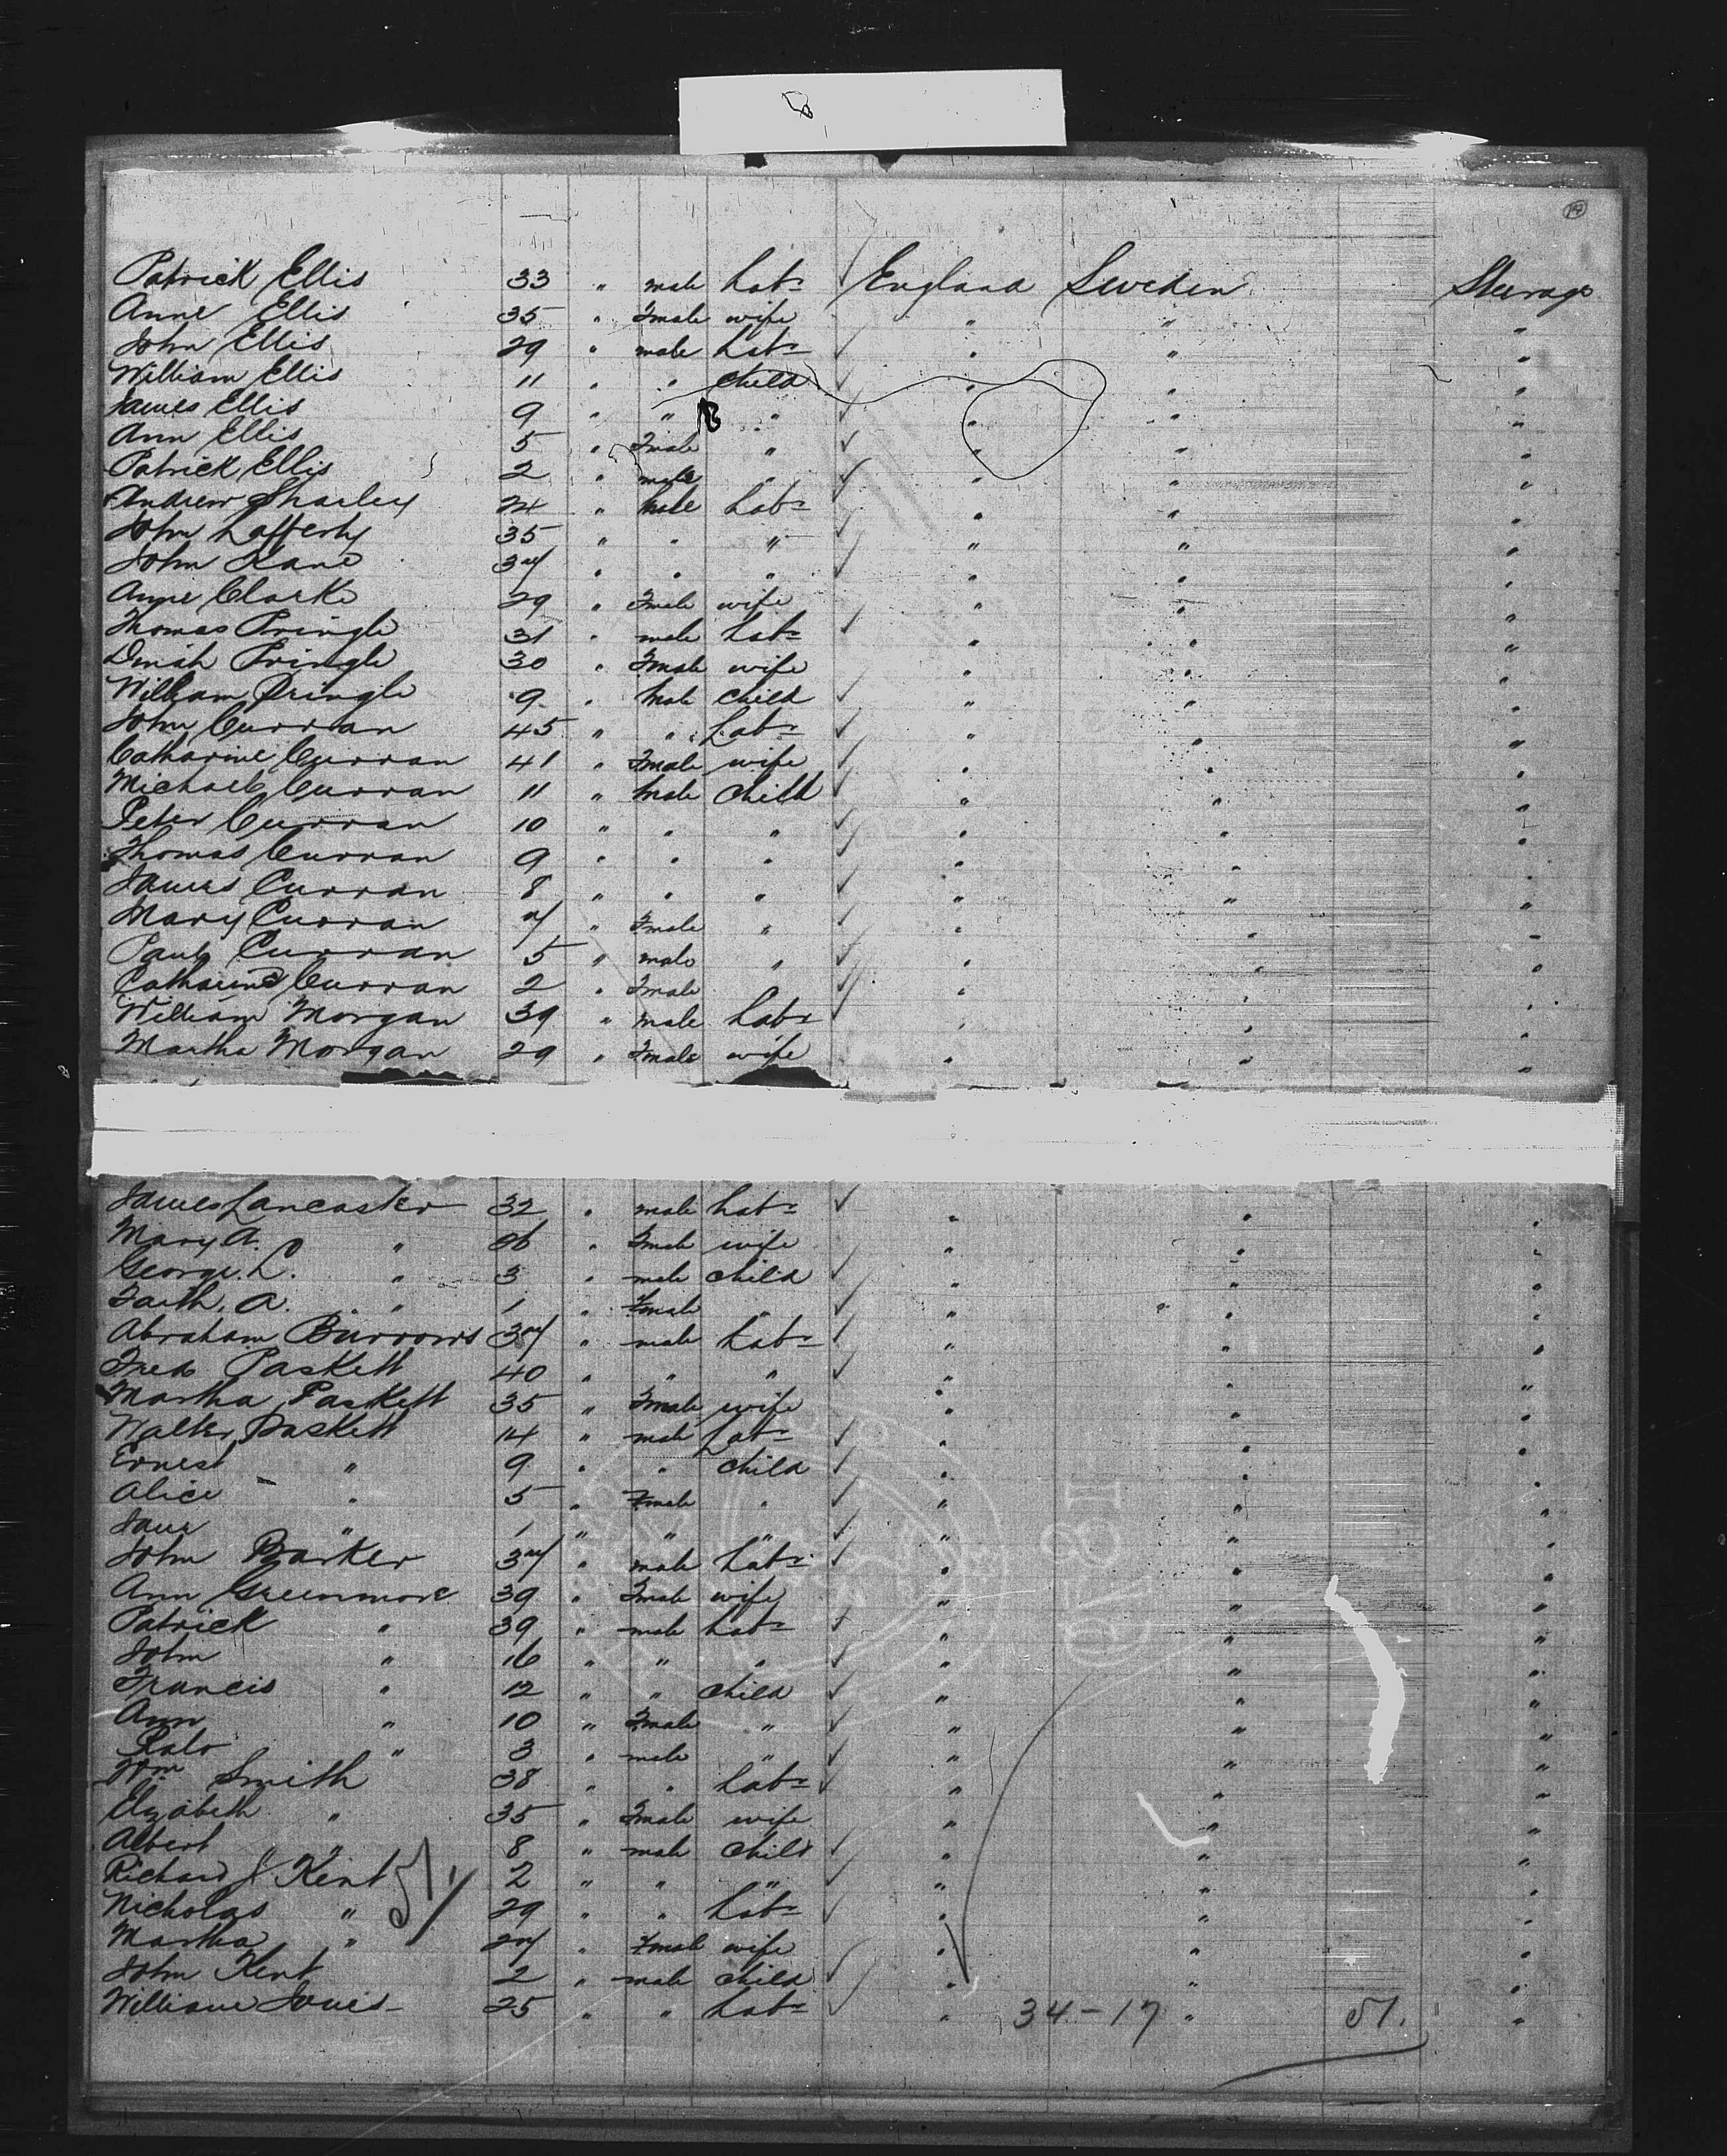 8
19
Patrick Ellis 33 " male Labr ✓ England Sweden Steerage
Anne Ellis 35 " Female wife " " "
John Ellis 29 " male Labr ✓ " " "
William Ellis 11 " " child ✓ " " "
James Ellis 9 " " " ✓ " " "
Ann Ellis 5 " Female " ✓ " " "
Patrick Ellis 2 " male " ✓ " " "
Andrew Sharley 24 " Male Labr " " "
John Lafferty 35 " " " ✓ " " "
John Kane 34 " " " ✓ " " "
Anne Clarke 29 " Female wife " " "
Thomas Pringle 31 " male Labr ✓ " " "
Dinah Pringle 30 " Female wife " " "
William Pringle 9 " Male child ✓ " " "
John Curran 45 " " Labr ✓ " " "
Catharine Curran 41 " Female wife ✓ " " "
Michael Curran 11 " Male child ✓ " " "
Peter Curran 10 " " " ✓ " " "
Thomas Curran 9 " " " ✓ " " "
James Curran 8 " " " ✓ " " "
Mary Curran 7 " Female " ✓ " " "
Paul Curran 5 " male " ✓ " " "
Catharine Curran 2 " Female ✓ " " "
William Morgan 39 " male Labr ✓ " " "
Martha Morgan 29 " Female wife " " "
James Lancaster 32 " male Labr ✓ " " "
Mary A. " 26 " Female wife " " "
George L. " 3 " male child ✓ " " "
Faith. A. " 1 " Female " ✓ " " "
Abraham Burrows 37 " male Labr ✓ " " "
Fred Paskett 40 " " " ✓ " " "
Martha Paskett 35 " Female wife " " "
Walter Paskett 14 " male Labr ✓ " " "
Ernest " 9 " " child ✓ " " "
Alice " 5 " Female " ✓ " " "
Jane " 1 " " " ✓ " " "
John Barker 37 " male Labr ✓ " " "
Ann Greenmore 39 " Female wife " " "
Patrick " 39 " male Labr ✓ " " "
John " 16 " " " ✓ " " "
Francis " 12 " " child ✓ " " "
Ann " 10 " Female " ✓ " " "
" 3 " male " ✓ " " "
Wm Smith 38 " " Labr ✓ " " "
Elizabeth " 35 " Female wife " " "
Albert " 8 " male child ✓ " " "
Richard J. Kent 51 2 " " " ✓ " " "
Nicholas " 29 " " Labr ✓ " " "
Martha " 27 " Female wife " " "
John Kent 2 " male child ✓ " " "
William Jones 25 " " Labr ✓ " 34-17 " 51. "